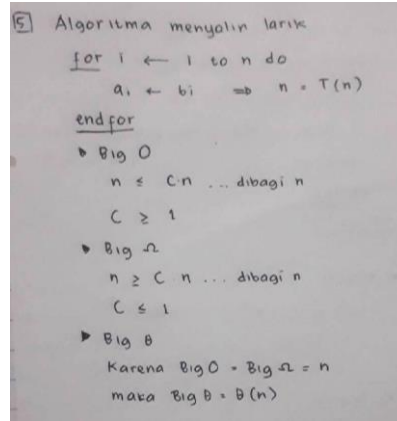 5 Algoritma menyalin larik
for i ← 1 to n do
ai ← bi ⇒ n = T(n)
end for
▶ Big O
n ≤ C.n ... dibagi n
C ≥ 1
▶ Big Ω
n ≥ C n ... dibagi n
C ≤ 1
▶ Big θ
Karena Big O = Big Ω = n
maka Big θ = θ(n)